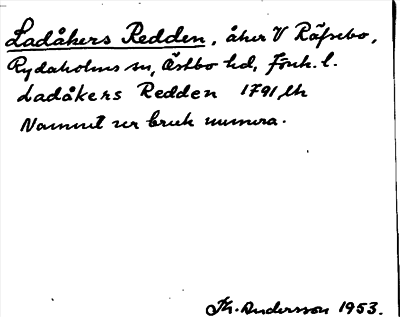 Ladåkers Redden, åker V Räfsebo,
Rydaholms sn, Östbo hd, Jönk. l.
Ladåkers Redden 1791, lh
Namnet ur bruk numera.
Th. Andersson 1953.